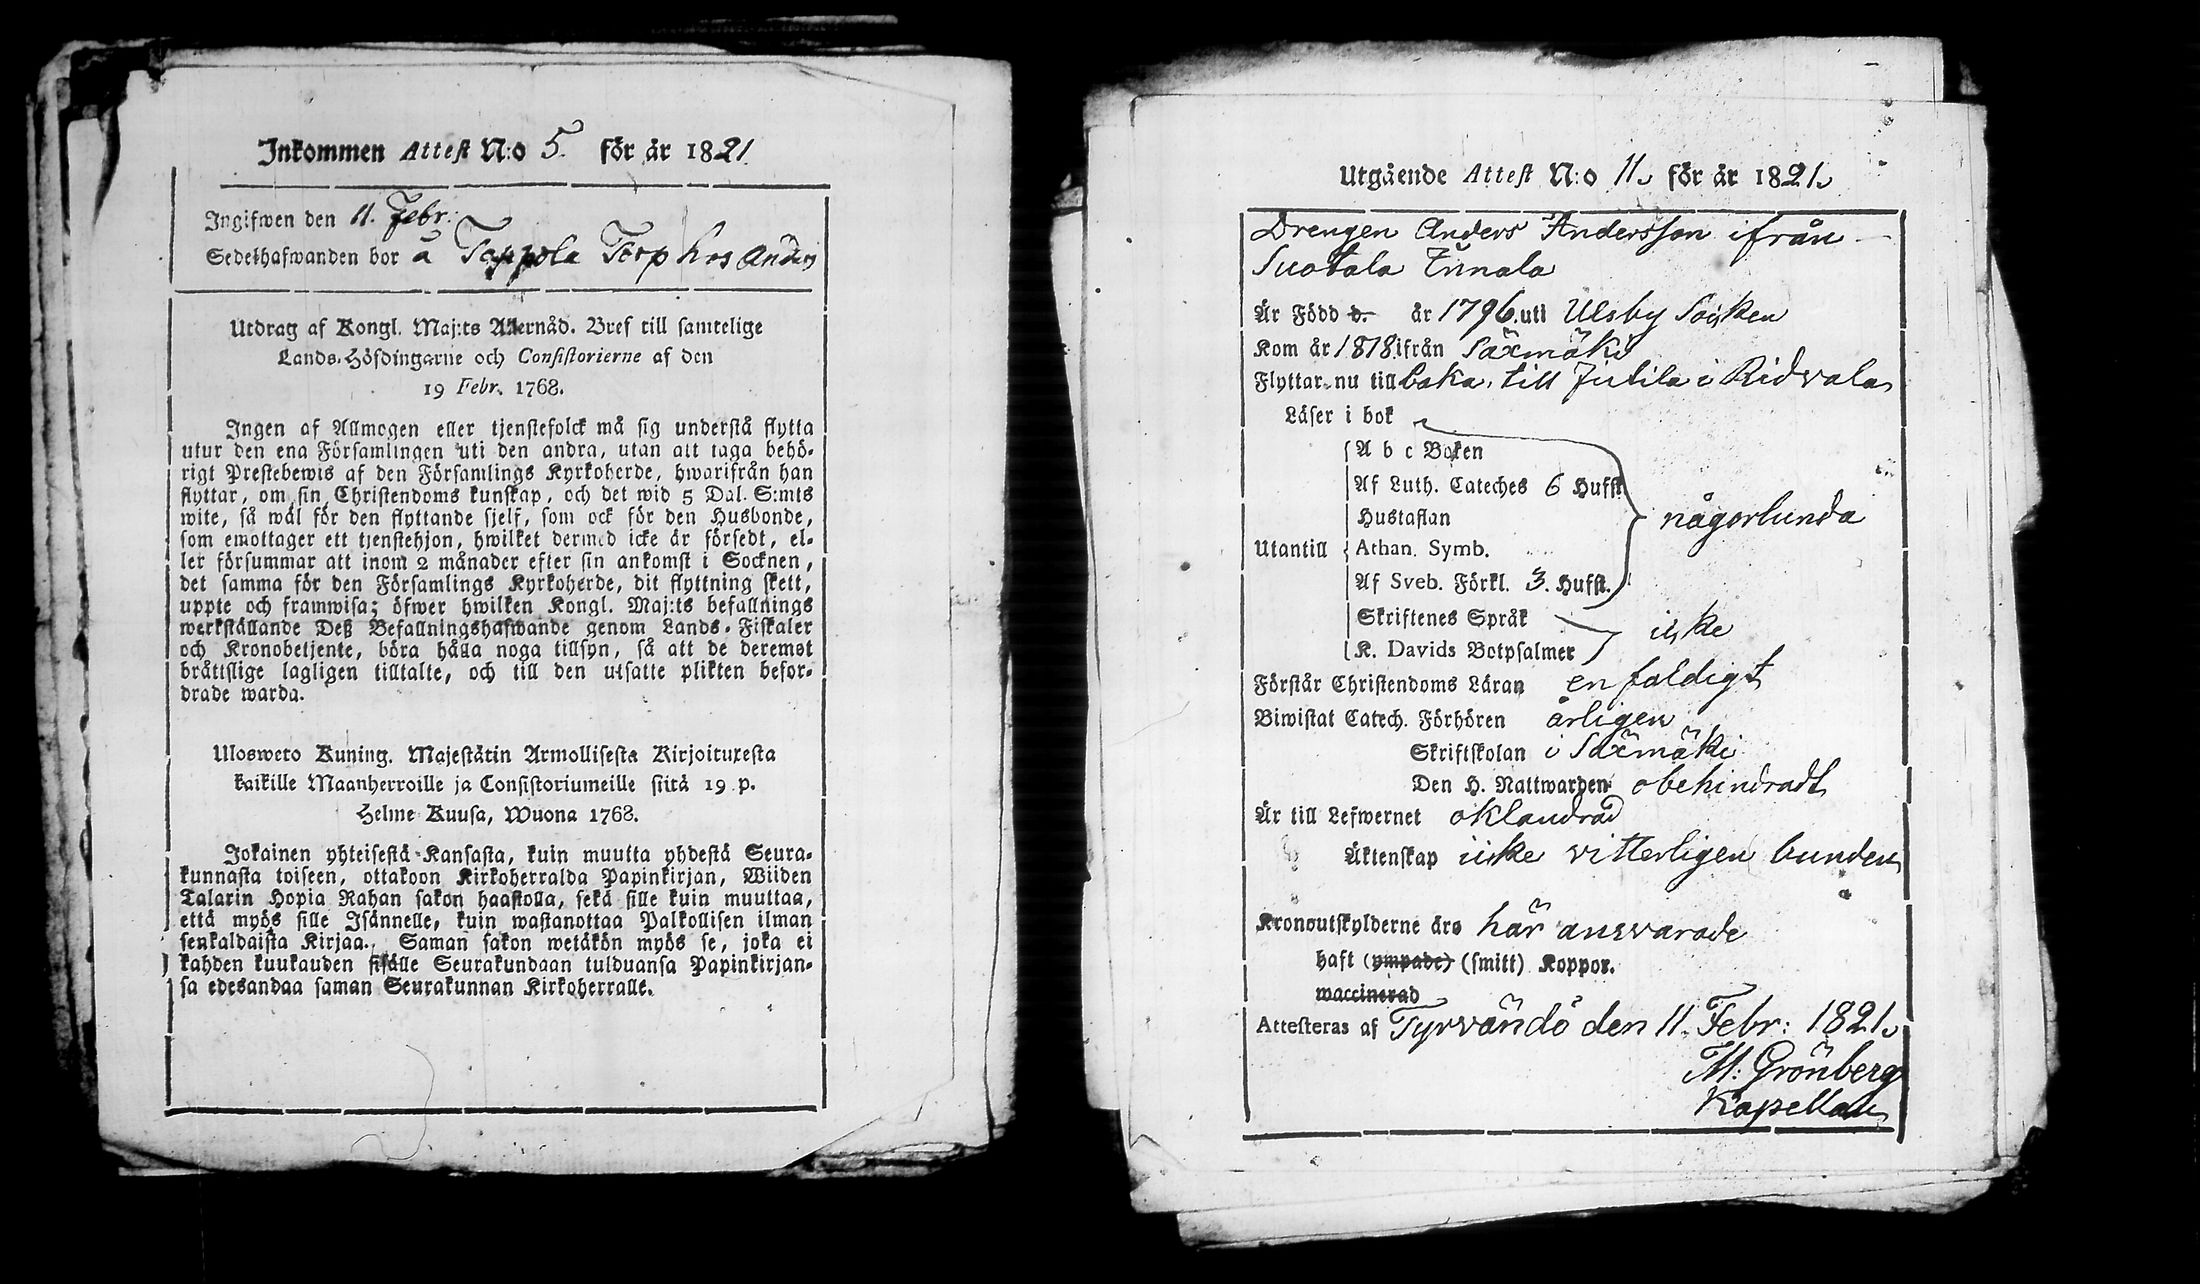 Inkommen Attest N:o 5. för år 1821.
Ingifwen den 11. Febr:
Sedelhafwanden bor å Toppola Torp hos Anders
Utdrag af Kongl. Maj:ts Allernåd. Bref till samtelige
Lands-Höfdingarne och Consistorierne af den
19 Febr. 1768.
Ingen af Allmogen eller tjenstefolck må sig understå flytta
utur den ena Församlingen uti den andra, utan att taga behö-
rigt Prestebewis af den Församlings Kyrkoherde, hwarifrån han
flyttar, om sin Christendoms kunskap, och det wid 5 Dal. S:mts
wite, så wäl för den flyttande sjelf, som ock för den Husbonde,
som emottager ett tjenstehjon, hwilket dermed icke är försedt, el-
ler försummar att inom 2 månader efter sin ankomst i Socknen,
det samma för den Församlings Kyrkoherde, dit flyttning skett,
uppte och framwisa; öfwer hwilken Kongl. Maj:ts befallnings
werkställande Deß Befallningshafwande genom Lands-Fiskaler
och Kronobetjente, böra hålla noga tillsyn, så att de deremot
bråttslige lagligen tilltalte, och till den utsatte plikten befor-
drade warda.
Ulosweto Kuning. Majestätin Armollisesta Kirjoituxesta
kaikille Maanherroille ja Consistoriumeille siitä 19 p.
Helme Kuusa, Wuona 1768.
Jokainen yhteisestä Kansasta, kuin muutta yhdestä Seura-
kunnasta toiseen, ottakoon Kirkoherralda Papinkirjan, Wiiden
Talarin Hopia Rahan sakon haastolla, sekä sille kuin muuttaa,
että myös sille Isännelle, kuin wastanottaa Palkollisen ilman
senkaldaista Kirjaa. Saman sakon wetäkön myös se, joka ei
kahden kuukauden sisälle Seurakundaan tulduansa Papinkirjan-
sa edesandaa saman Seurakunnan Kirkoherralle.
Utgående Attest N:o 11. för år 1821.
Drengen Anders Andersson ifrån
Suotala Innala
Är Född d. år 1796. uti Ulsby Socken
Kom år 1818. ifrån Säxmäki
Flyttar nu tillbaka till Jutila i Ridvala
Läser i bok
A b c Boken
Af Luth. Cateches 6 Hufst.
Hustaflan
någorlunda
Utantill Athan. Symb.
Af Sveb. Förkl. 3. Hufst.
Skriftenes Språk
icke
K. Davids Botpsalmer
Förstår Christendoms Läran enfaldigt
Biwistat Catech. Förhören årligen
Skriftskolan i Säxmäki
Den H. Nattwarden obehindradt
Är till Lefwernet oklandrad
Äktenskap icke vitterligen bunden
Kronoutskylderne äro här ansvarade
haft (ympade) (smitt) Koppor.
waccinerad
Attesteras af Tyrvändö den 11. Febr: 1821.
M: Grönberg
Kapellan